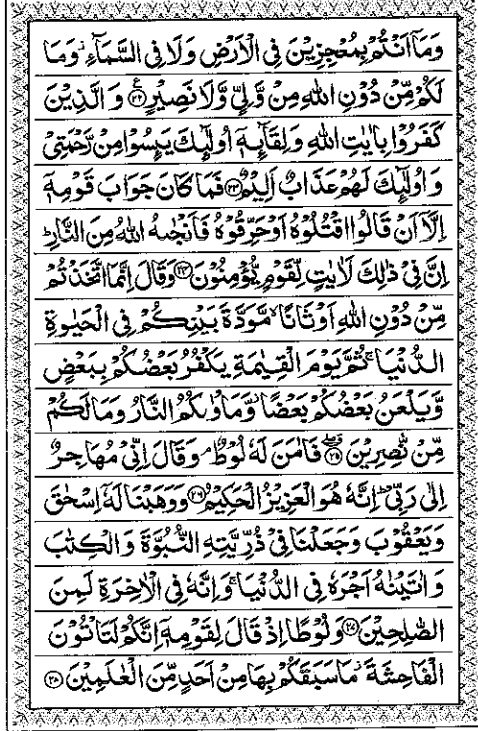 وَمَآ اَنْتُمْ بِمُعْجِزِيْنَ فِى الْاَرْضِ وَلَا فِى السَّمَآءِ ۡ وَمَا
لَكُمْ مِّنْ دُوْنِ اللّٰهِ مِنْ وَّلِىٍّ وَّلَا نَصِيْرٍ ۝۲۲ وَ الَّذِيْنَ
كَفَرُوْا بِاٰيٰتِ اللّٰهِ وَ لِقَآئِهٖٓ اُولٰٓئِكَ يَئِسُوْا مِنْ رَّحْمَتِىْ
وَ اُولٰٓئِكَ لَهُمْ عَذَابٌ اَلِيْمٌ ۝۲۳ فَمَا كَانَ جَوَابَ قَوْمِهٖٓ
اِلَّاۤ اَنْ قَالُوا اقْتُلُوْهُ اَوْ حَرِّقُوْهُ فَاَنْجٰىهُ اللّٰهُ مِنَ النَّارِ ؕ
اِنَّ فِىْ ذٰلِكَ لَاٰيٰتٍ لِّقَوْمٍ يُّؤْمِنُوْنَ ۝۲۴ وَقَالَ اِنَّمَا اتَّخَذْتُمْ
مِّنْ دُوْنِ اللّٰهِ اَوْثَانًا ۙ مَّوَدَّةَ بَيْنِكُمْ فِى الْحَيٰوةِ
الدُّنْيَا ۚ ثُمَّ يَوْمَ الْقِيٰمَةِ يَكْفُرُ بَعْضُكُمْ بِبَعْضٍ
وَّيَلْعَنُ بَعْضُكُمْ بَعْضًا ۡ وَّمَاْوٰىكُمُ النَّارُ وَمَا لَكُمْ
مِّنْ نّٰصِرِيْنَ ۝۲۵ فَاٰمَنَ لَهٗ لُوْطٌ ۘ وَقَالَ اِنِّىْ مُهَاجِرٌ
اِلٰى رَبِّىْ ؕ اِنَّهٗ هُوَ الْعَزِيْزُ الْحَكِيْمُ ۝۲۶ وَوَهَبْنَا لَهٗٓ اِسْحٰقَ
وَيَعْقُوْبَ وَجَعَلْنَا فِىْ ذُرِّيَّتِهِ النُّبُوَّةَ وَ الْكِتٰبَ
وَ اٰتَيْنٰهُ اَجْرَهٗ فِى الدُّنْيَا ۚ وَ اِنَّهٗ فِى الْاٰخِرَةِ لَمِنَ
الصّٰلِحِيْنَ ۝۲۷ وَلُوْطًا اِذْ قَالَ لِقَوْمِهٖٓ اِنَّكُمْ لَتَاْتُوْنَ
الْفَاحِشَةَ ۡ مَا سَبَقَكُمْ بِهَا مِنْ اَحَدٍ مِّنَ الْعٰلَمِيْنَ ۝۲۸